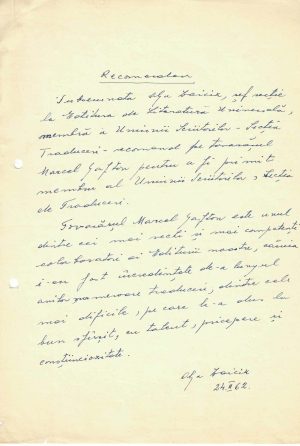 Recomandare
Subsemnata Olga Zaicik, șef secție
la Editura de Literatură Universală,
membră a Uniunii Scriitorilor - Secția
Traduceri - recomand pe tovarășul
Marcel Gafton pentru a fi primit
membru al Uniunii Scriitorilor, Secția
de Traduceri.
Tovarășul Marcel Gafton este unul
dintre cei mai vechi și mai competenți
colaboratori ai Editurii noastre, căruia
i-au fost încredințate de-a lungul
anilor numeroase traduceri, dintre cele
mai dificile, pe care le-a dus la
bun sfîrșit, cu talent, pricepere și
conștiinciozitate.
Olga Zaicik
24.II.62.